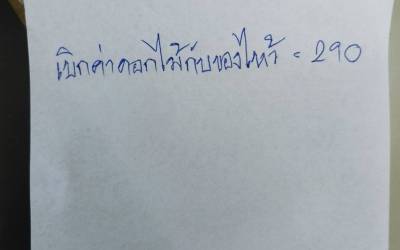 เบิกค่าดอกไม้กับของไหว้ = 290